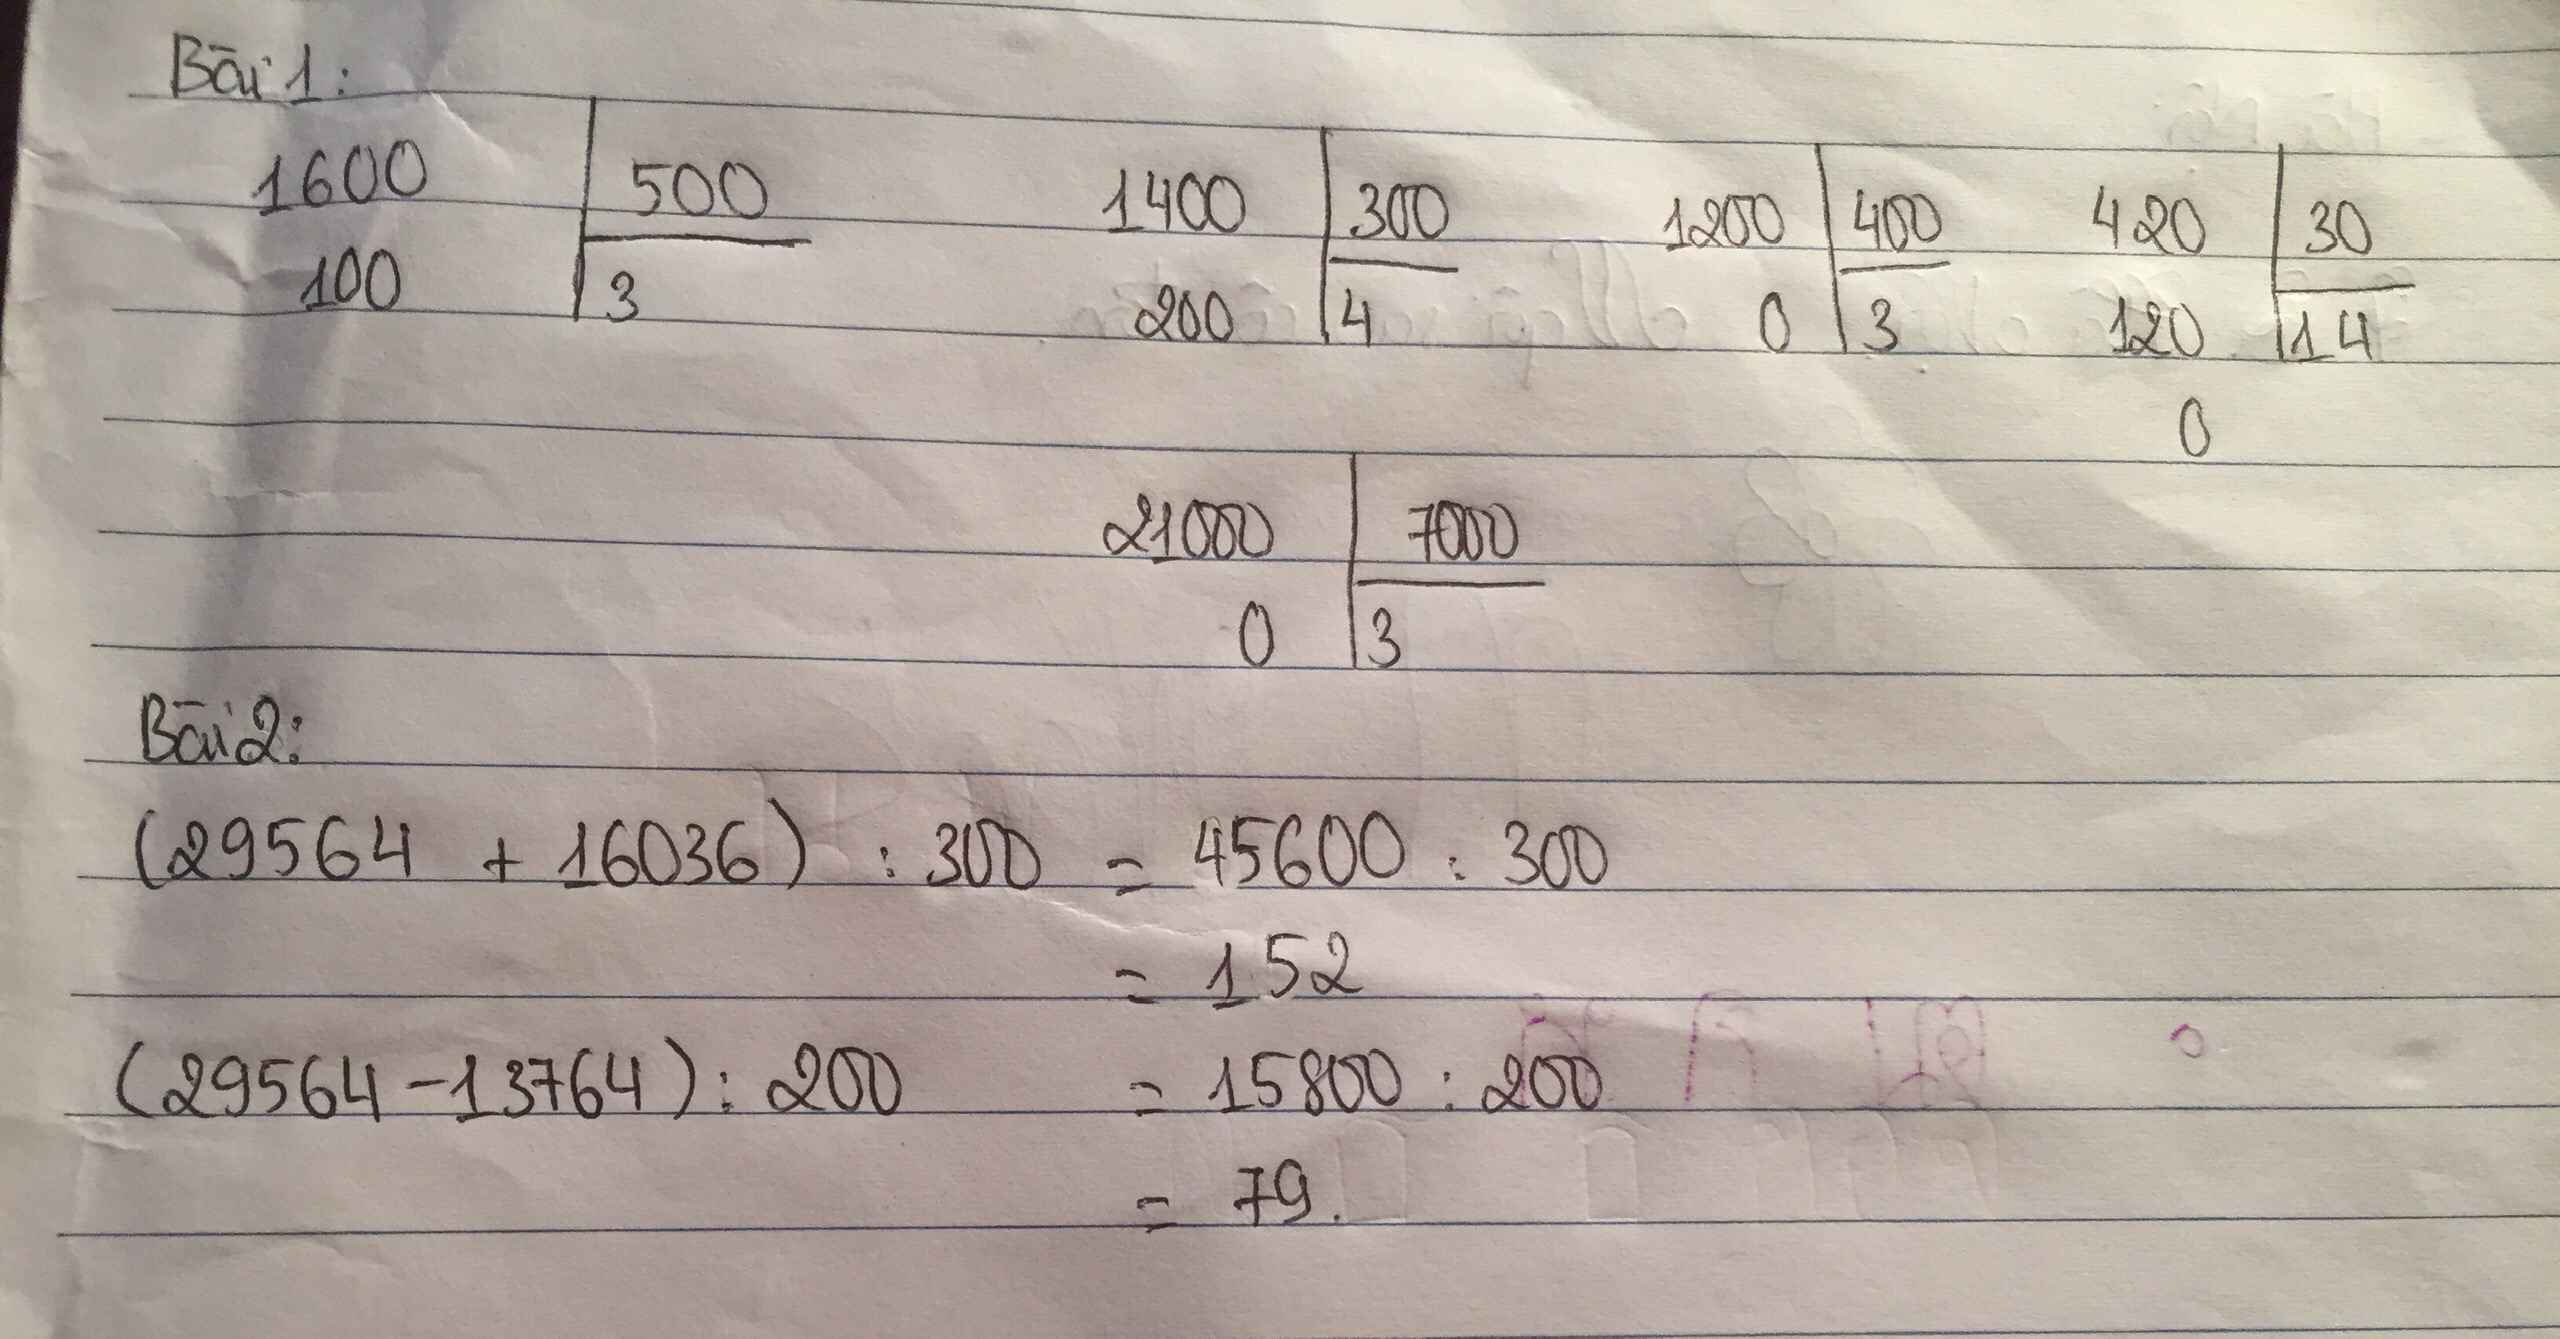 Bài 1:
1600 500 1400 300 1200 400 420 30
100 3 200 4 0 3 120 14
0
21000 7000
0 3
Bài 2:
(29564 + 16036) : 300 = 45600 : 300
= 152
(29564 - 13764) : 200 = 15800 : 200
= 79.